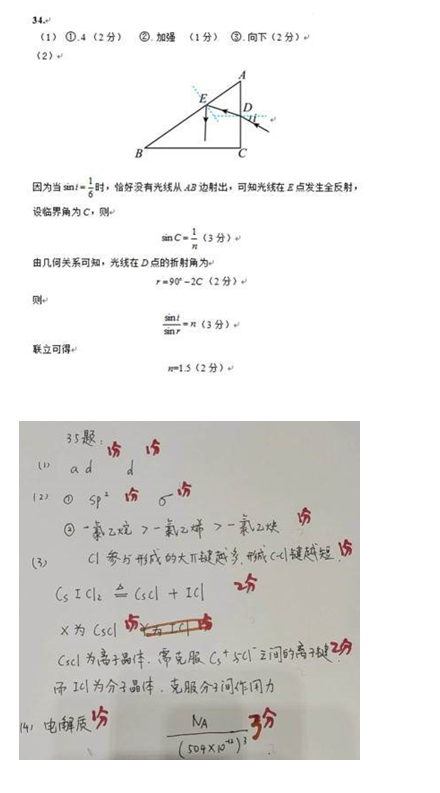 34.
(1) ①.4 (2分) ②.加强 (1分) ③.向下(2分)
(2)
A
E
D
i
B
C
因为当 sin i = 1/6 时,恰好没有光线从 AB 边射出,可知光线在 E 点发生全反射,
设临界角为 C,则
sin C = 1/n (3分)
由几何关系可知,光线在 D 点的折射角为
r = 90° − 2C (2分)
则
sin i / sin r = n (3分)
联立可得
n=1.5 (2分)
35题: 1分 1分
(1) a d d
(2) ① sp² 1分 σ 1分
② 一氯乙烷 > 一氯乙烯 > 一氯乙炔 1分
(3) Cl 参与形成的大π键越多,形成C-Cl键越短 1分
CsICl₂ ≜ CsCl + ICl 2分
X为 CsCl 1分 1分
CsCl为离子晶体,需克服 Cs⁺与Cl⁻之间的离子键 2分
而 ICl为分子晶体,克服分子间作用力
(4) 电解质 1分 NA / (504×10⁻¹²)³ 3分